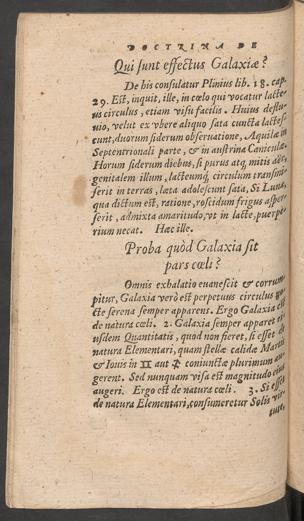 DOCTRINA DE
Qui sunt effectus Galaxiæ?
De his consulatur Plinius lib. 18. cap.
29. Est, inquit, ille, in cœlo qui vocatur lacte-
us circulus, etiam visu facilis. Huius deflu-
uio, velut ex vbere aliquo sata cuncta lactes-
cunt, duorum siderum obseruatione, Aquilæ in
Septentrionali parte, & in austrina Caniculæ.
Horum siderum diebus, si purus atq; mitis aër,
genitalem illum, lacteumq; circulum transmi-
serit in terras, læta adolescunt sata, Si Luna,
qua dictum est, ratione, roscidum frigus asper-
serit, admixta amaritudo, vt in lacte, puerpe-
rium necat. Hæc ille.
Proba quòd Galaxia sit
pars cœli?
Omnis exhalatio euanescit & corrum-
pitur, Galaxia verò est perpetuus circulus
cte serena semper apparens. Ergo Galaxia est
de natura cœli. 2. Galaxia semper apparet
usdem Quantitatis, quod non fieret, si esset de
natura Elementari, quam stellæ calidæ Martis
& Iouis in ♊ aut ♐ coniunctæ plurimum au-
gerent. Sed nunquam visa est magnitudo eius
augeri. Ergo est de natura cœli. 3. Si esset
de natura Elementari, consumeretur Solis vir-
tute,